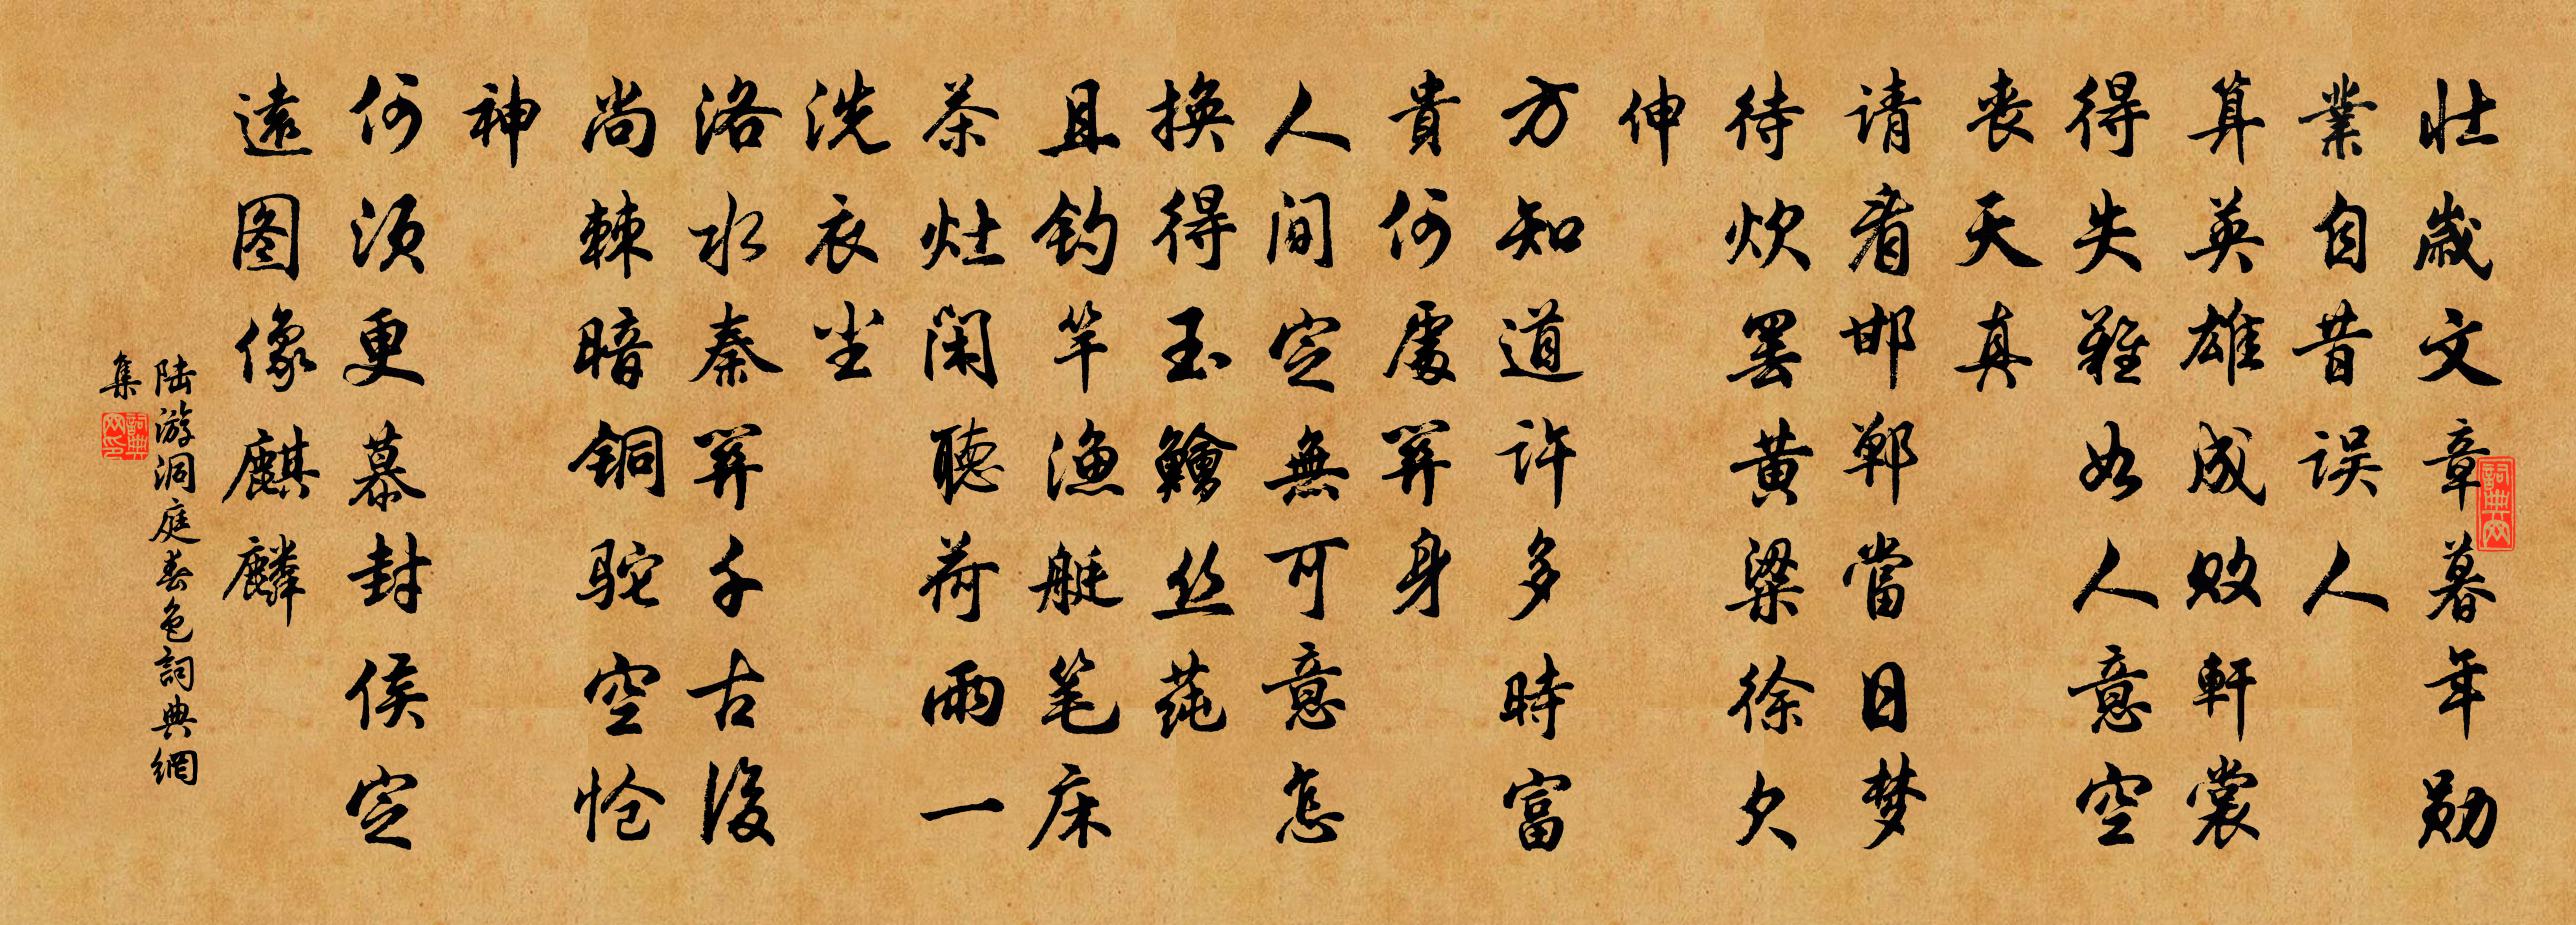 壮歲文章暮年勋
業自昔误人
算英雄成败軒裳
得失難如人意空
丧天真
请看邯郸當日梦
待炊罢黄粱徐欠
伸
方知道许多時富
貴何處關身
人间定無可意怎
换得玉鱠丝莼
且钓竿漁艇笔床
茶灶闲聽荷雨一
洗衣尘
洛水秦關千古後
尚棘暗铜驼空怆
神
何须更慕封侯定
遠图像麒麟
陆游洞庭春色詞典網
集
詞典网
詞典网印